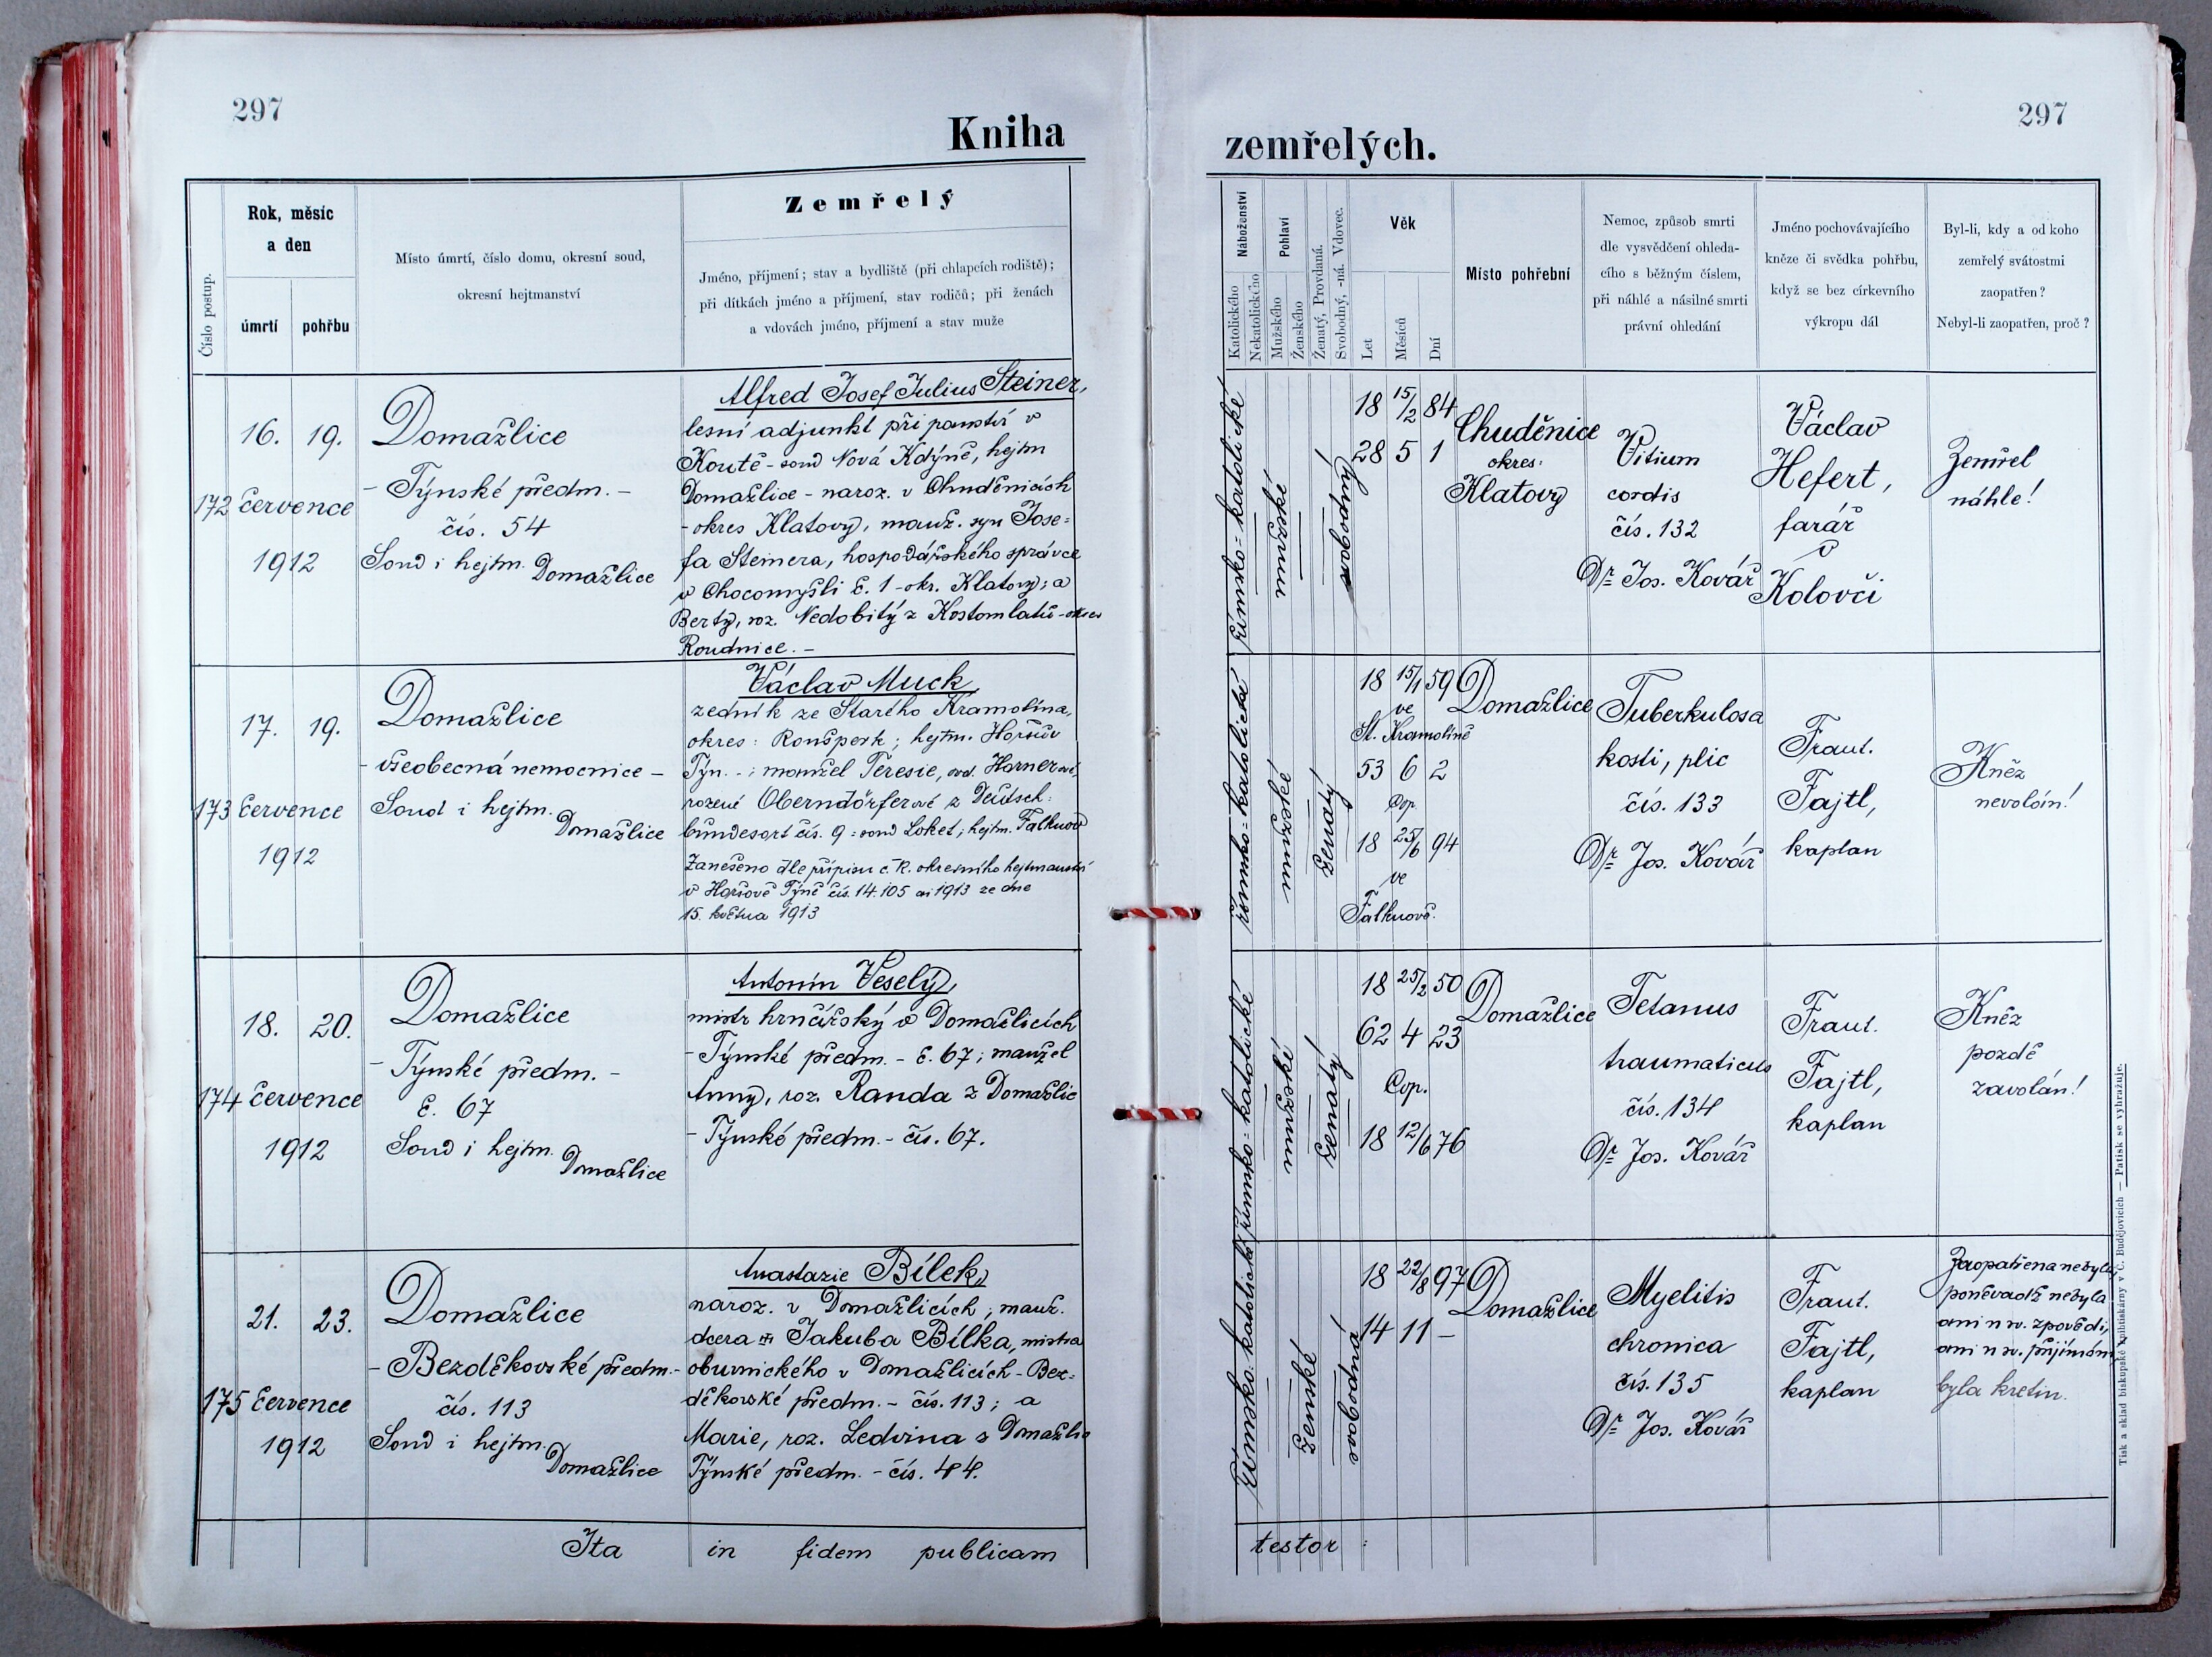 297
Kniha
Číslo postup.
Rok, měsíc
a den
úmrtí
pohřbu
Místo úmrtí, číslo domu, okresní soud,
okresní hejtmanství
Zemřelý
Jméno, příjmení; stav a bydliště (při chlapcích rodiště);
při dítkách jméno a příjmení, stav rodičů; při ženách
a vdovách jméno, příjmení a stav muže
172
16. 19.
července
1912
Domažlice
- Týnské předm. -
čís. 54
Soud i hejtm. Domažlice
Alfred Josef Julius Steiner,
lesní adjunkt při panství v
Koutě - soud Nová Kdýně, hejtm
Domažlice - naroz. v Chuděnicích
- okres Klatovy, manž. syn Jose=
fa Steinera, hospodářského správce
v Chocomyšli č. 1 - okr. Klatovy; a
Berty, roz. Nedobitý z Kostomlatů - okres
Roudnice. -
173
17. 19.
července
1912
Domažlice
- všeobecná nemocnice -
Soud i hejtm.
Domažlice
Václav Muck,
zedník ze Starého Kramolína,
okres: Ronšperk; hejtm. Horšův
Týn. -; manžel Teresie, ovd. Hornerové,
rozené Oberndörferové z Deutsch=
bundesort čís. 9 = soud Loket; hejtm. Falknov
Zaneseno dle přípisu c. k. okresního hejtmanství
v Horšově Týně čís. 14.105 ai 1913 ze dne
15. května 1913
174
18. 20.
července
1912
Domažlice
- Týnské předm. -
č. 67
Soud i hejtm.
Domažlice
Antonín Veselý,
mistr hrnčířský v Domažlicích
- Týnské předm. - č. 67; manžel
Anny, roz. Randa z Domažlic
- Týnské předm. - čís. 67.
175
21. 23.
července
1912
Domažlice
- Bezděkovské předm. -
čís. 113
Soud i hejtm.
Domažlice
Anastazie Bílek,
naroz. v Domažlicích; manž.
dcera Jakuba Bílka, mistra
obuvnického v Domažlicích - Bez=
děkovské předm. - čís. 113; a
Marie, roz. Ledvina z Domažlic
Týnské předm. - čís. 44.
Ita in fidem publicam
297
zemřelých.
Náboženství
Katolického
Nekatolického
Pohlaví
Mužského
Ženského
Ženatý, Provdaná.
Svobodný, -ná. Vdovec.
Věk
Let
Měsíců
Dní
Místo pohřební
Nemoc, způsob smrti
dle vysvědčení ohleda-
cího s běžným číslem,
při náhlé a násilné smrti
právní ohledání
Jméno pochovávajícího
kněze či svědka pohřbu,
když se bez církevního
výkropu dál
Byl-li, kdy a od koho
zemřelý svátostmi
zaopatřen?
Nebyl-li zaopatřen, proč?
římsko-katolické
mužské
svobodný
18 15/2 84
28 5 1
Chuděnice
okres:
Klatovy
Vitium
cordis
čís. 132
Dr Jos. Kovář
Václav
Hefert,
farář
v
Kolovči
Zemřel
náhle!
římsko-katolické
mužské
ženatý
18 15/1 59
ve
St. Kramolíně
53 6 2
Cop.
18 25/6 94
ve
Falknově.
Domažlice
Tuberkulosa
kosti, plic
čís. 133
Dr Jos. Kovář
Frant.
Fajtl,
kaplan
Kněz
nevolán!
římsko-katolické
mužské
ženatý
18 25/2 50
62 4 23
Cop.
18 12/6 76
Domažlice
Tetanus
traumaticus
čís. 134
Dr Jos. Kovář
Frant.
Fajtl,
kaplan
Kněz
pozdě
zavolán!
římsko-katolické
ženské
svobodná
18 22/8 97
14 11 -
Domažlice
Myelitis
chronica
čís. 135
Dr Jos. Kovář
Frant.
Fajtl,
kaplan
Zaopatřena nebyla
poněvadž nebyla
ani u sv. zpovědi,
ani u sv. přijímání,
byla kretin.
testor:
Tisk a sklad biskupské knihtiskárny v Č. Budějovicích — Patisk se vyhražuje.